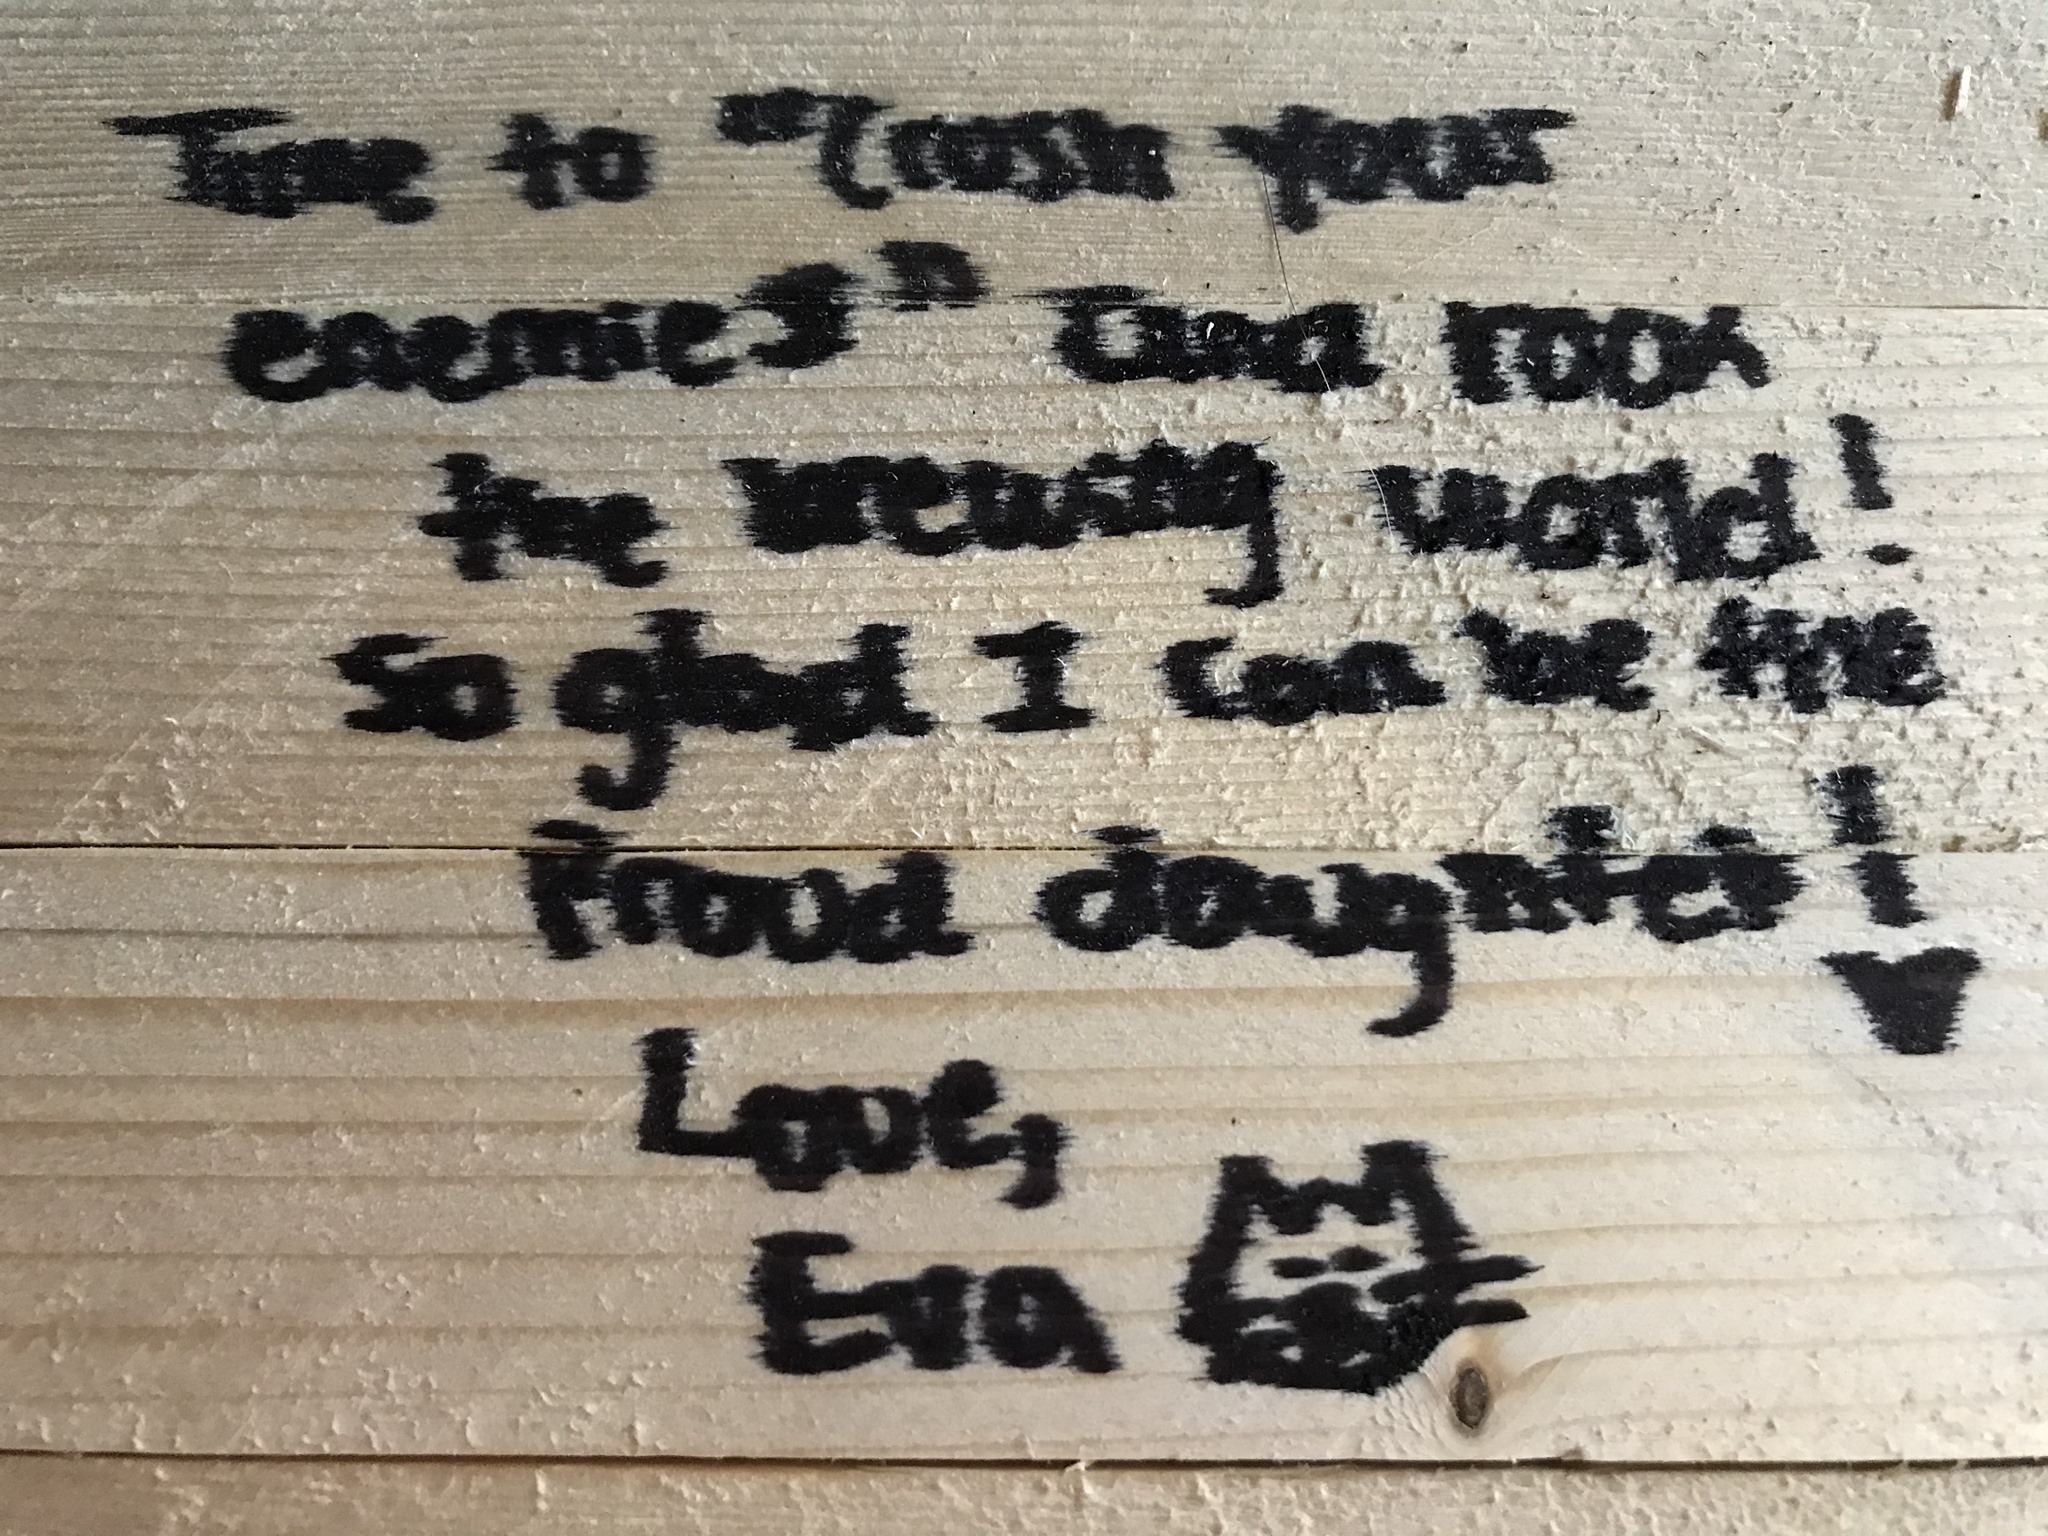 Time to "Crush your
enemies" and rock
the brewing world!
So glad I can be the
Proud daughter!
Love,
Eva